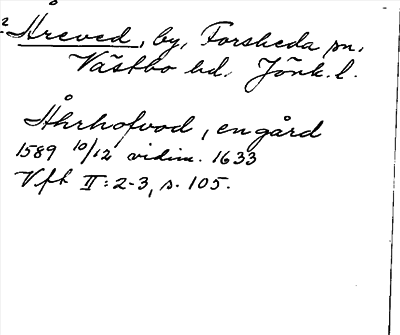 2 Åreved, by, Forsheda sn,
Västbo hd. Jönk. l.
Åhrhofvod, en gård
1589 10/12 vidim. 1633
Vft II: 2-3, s. 105.